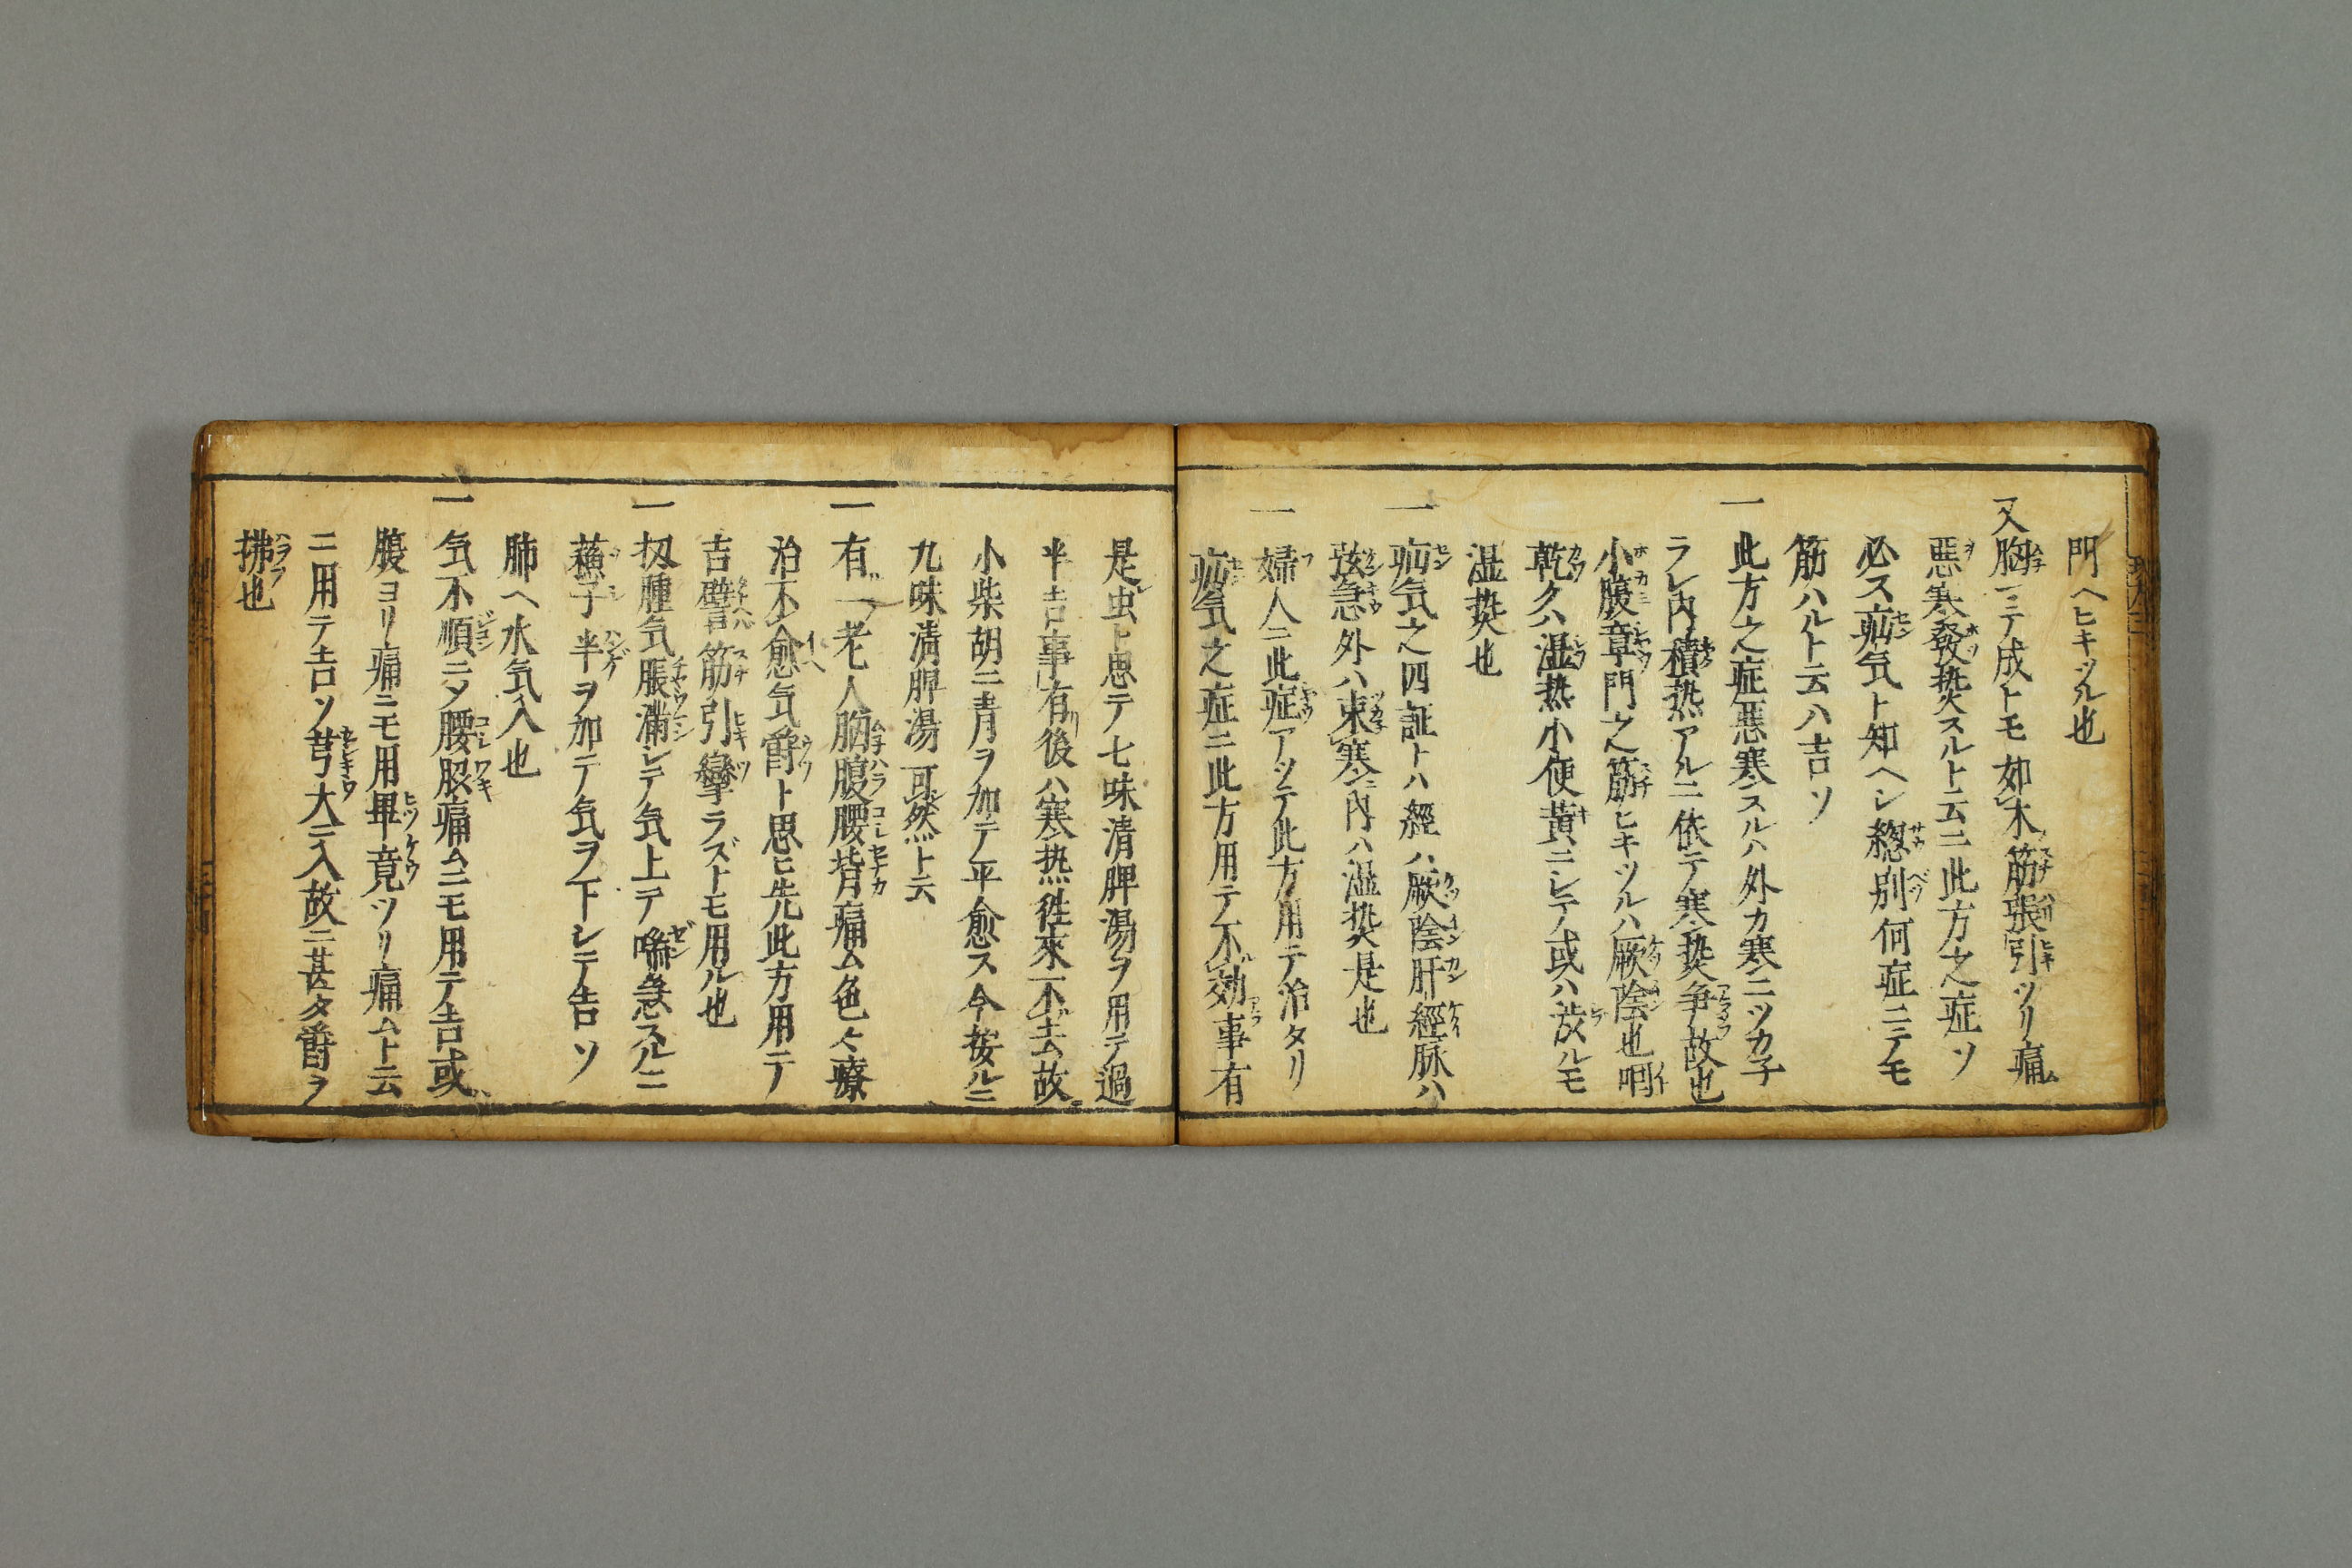 門ヘヒキツル也
又胸ニテ成トモ如木筋張引ツリ痛
悪寒發𤍠スルト云ニ此方之症ソ
必ス疝気ト知ヘシ惣別何症ニテモ
筋ハルト云ハ吉ソ
一 此方之症悪寒スルハ外カ寒ニツカ子
ラレ内積热アルニ依テ寒𤍠争故也
小腹章門之筋ヒキツルハ厥陰也咽
乾久ハ湿热小便黄ニシテ或ハ渋ルモ
湿𤍠也
一 疝気之四証トハ經ハ厥陰肝經脉ハ
弦急外ハ束寒内ハ湿𤍠是也
一 婦人ニ此症アツテ此方用テ治タリ
疝気之症ニ此方用テ不効事有
是虫ト思テ七味清脾湯ヲ用テ過
半吉事有後ハ寒热徃來不去故
小柴胡ニ青ヲ加テ平愈ス今按ルニ
九味清脾湯可然ト云
一 有一老人胸腹腰背痛ム色々療
治不愈気欝ト思ヒ先此方用テ
吉譬筋引攣ラズトモ用ル也
一 扨腫気脹滿シテ気上テ喘急スルニ
蘓子半ヲ加テ気ヲ下シテ吉ソ
肺ヘ水気入也
一 気不順ニメ腰脇痛ムニモ用テ吉或
腹ヨリ痛ニモ用畢竟ツリ痛ムト云
ニ用テ吉ソ芎大ニ入故ニ甚タ欝ヲ
拂也